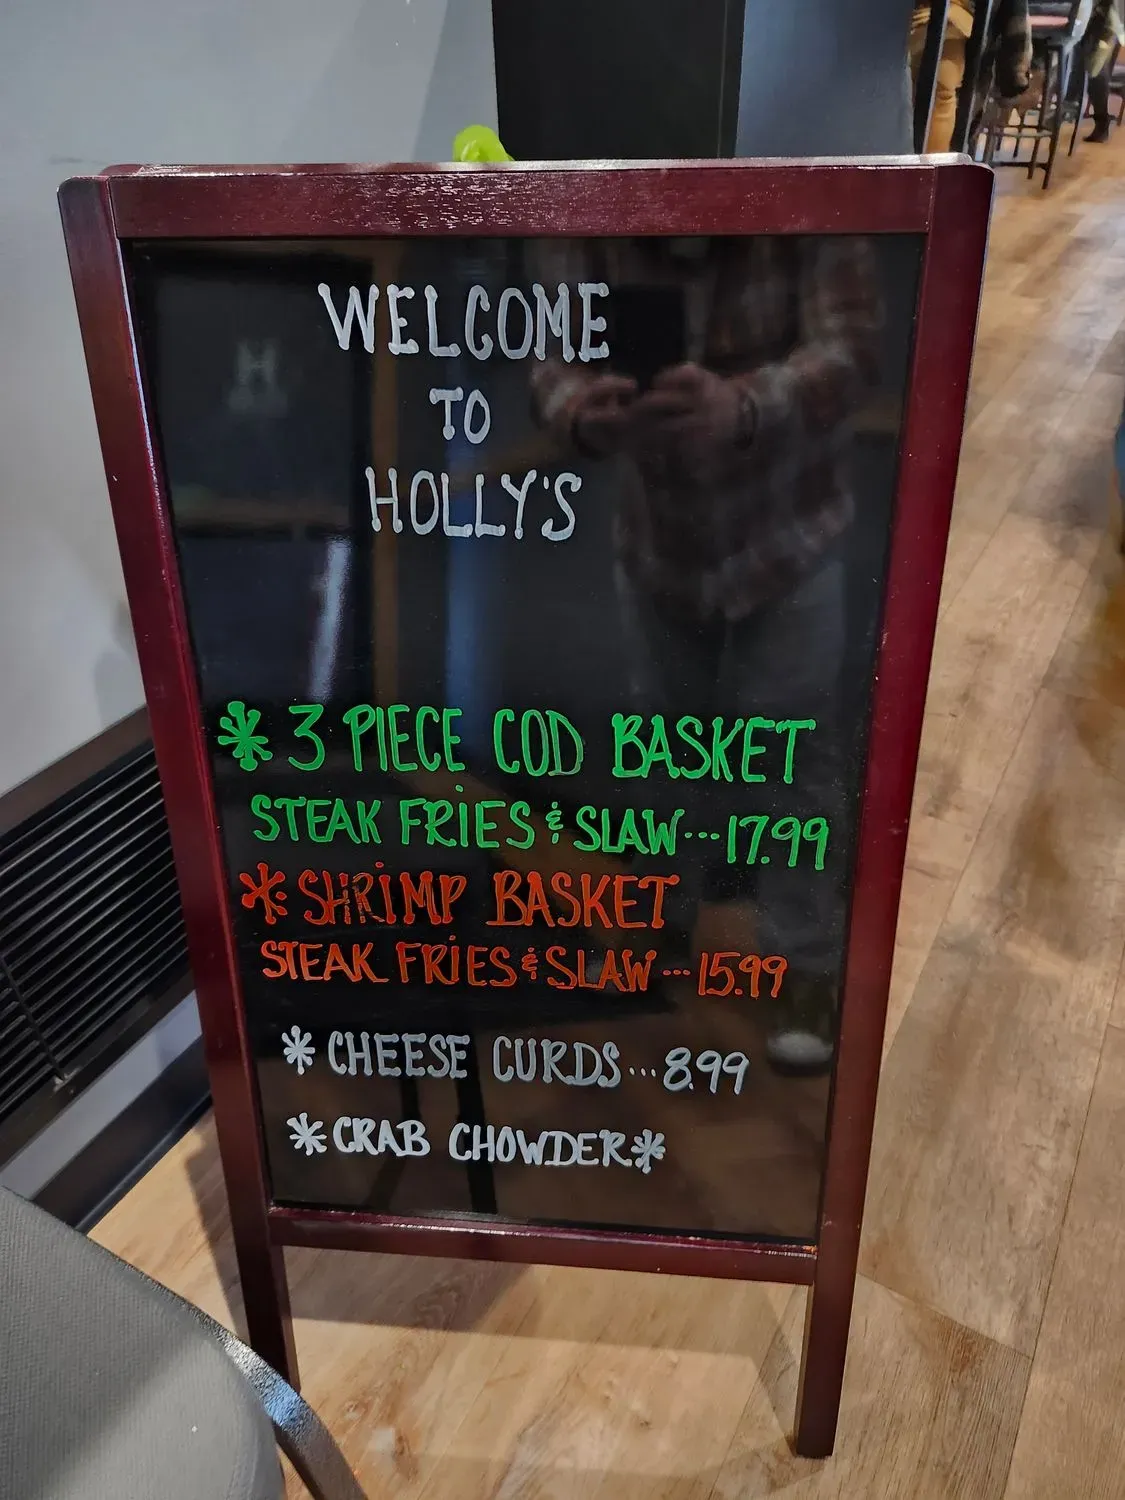 WELCOME
TO
HOLLY'S
* 3 PIECE COD BASKET
STEAK FRIES & SLAW...17.99
* SHRIMP BASKET
STEAK FRIES & SLAW...15.99
* CHEESE CURDS...8.99
* CRAB CHOWDER *
H